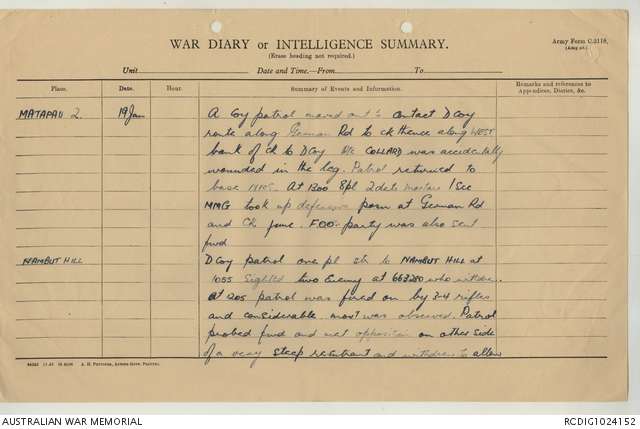 WAR DIARY or INTELLIGENCE SUMMARY.
(Erase heading not required.)
Army Form C.2118,
Unit Date and Time.—From To
Place. Date. Hour. Summary of Events and Information. Remarks and references to Appendices, Diaries, &c.
MATAPAU 2. 19 Jan A Coy patrol moved out to contact D Coy
route along German Rd to ck thence along WEST
bank of ck to D Coy Pte COLLARD was accidentally
wounded in the leg. Patrol returned to
base At 1300 8pl 2 dets mortars 1 Sec
MMG took up defensive posn at German Rd
and CK junc. FOO party was also sent
fwd
NAMBUT HILL D Coy patrol one pl str to NAMBUT HILL at
1055 Sighted two Enemy at 663280 who withdrew.
At 1205 patrol was fired on by 3-4 rifles
and considerable movt was observed. Patrol
probed fwd and met opposition on other side
of a very steep reentrant and withdrew to allow
A. H. Pettifer, Acting Govt. Printer.
AUSTRALIAN WAR MEMORIAL
RCDIG1024152